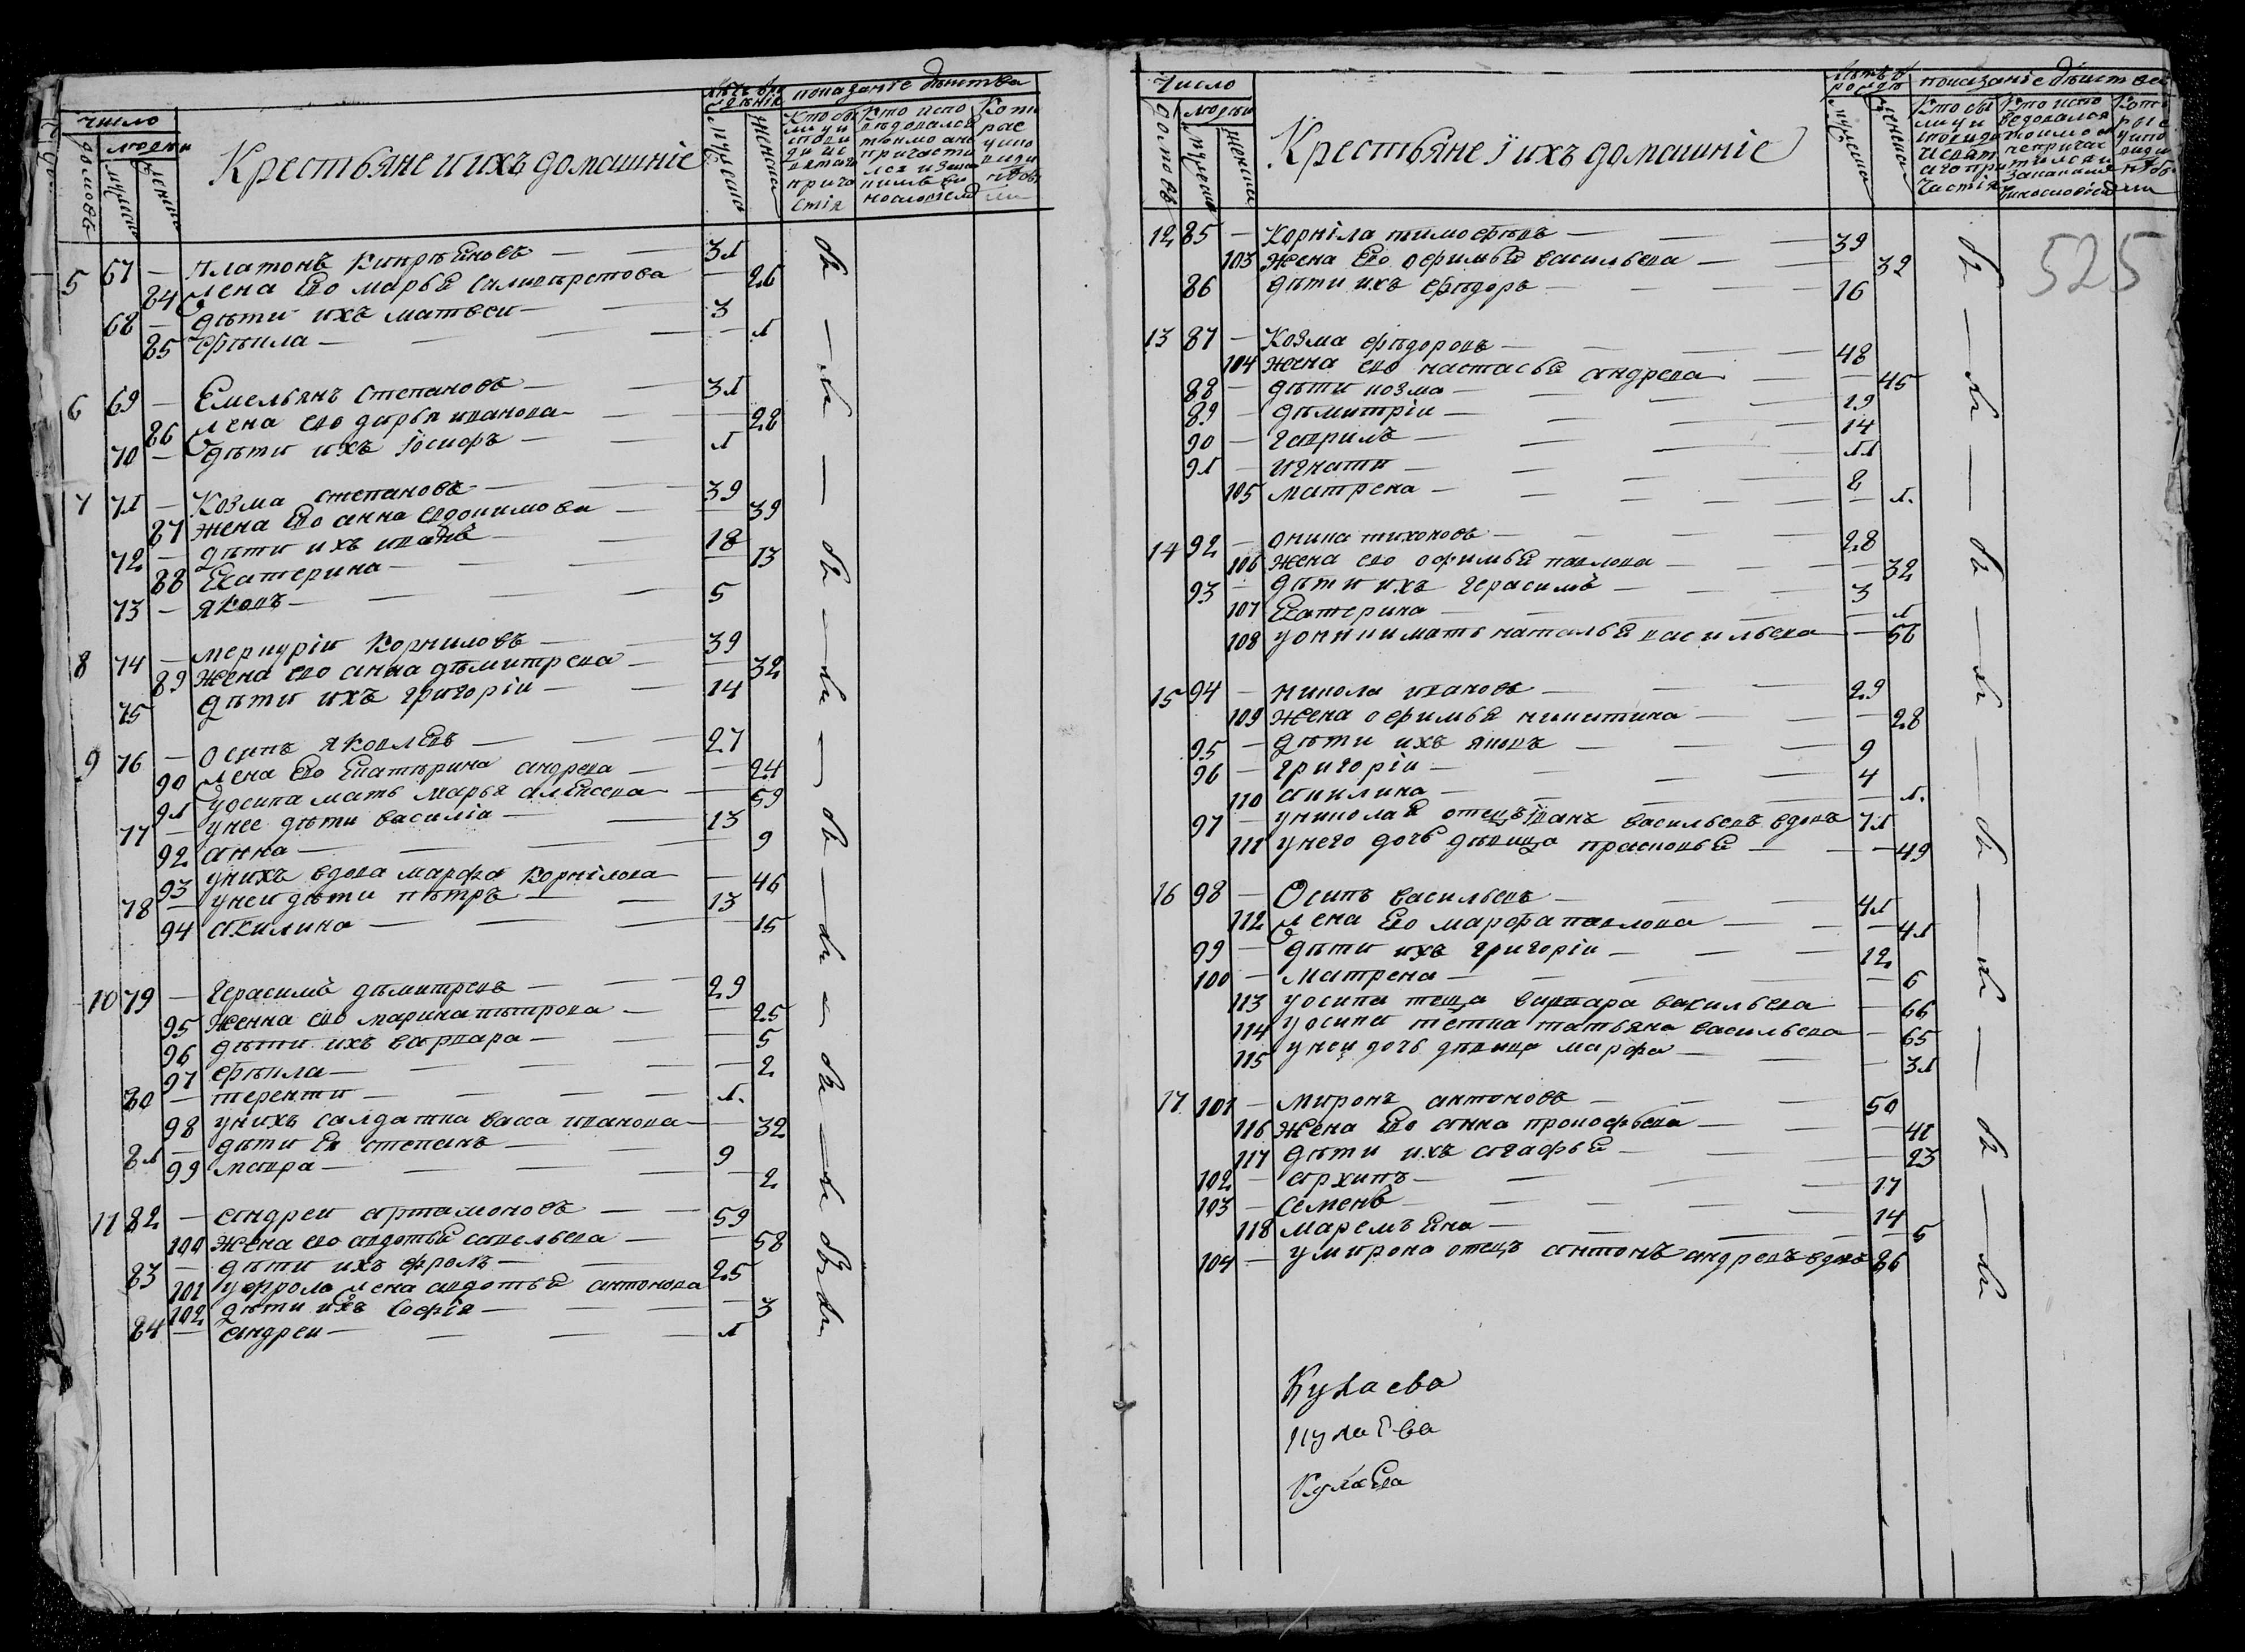 число
людеи
домовъ
мужеска
женска
Крестьяне и ихъ домашніе
показаніе действа
5 67 — платонъ Кипреяновъ — 31
84 жена Ево марья Селивѣрстова — 26
68 — дѣти ихъ матвеи — 3
85 Ѳѣкла — 1
6 69 — Емельянъ Степановъ — 31
86 жена ево дарья иванова — 28
70 — дѣти ихъ іосифъ — 1
7 71 — Козма степановъ — 39
87 жена Ево анна Евдокимова — 39
72 — дѣти ихъ иванъ — 18
88 Екатерина — 13
73 — яковъ — 5
8 74 — меркуріи Корниловъ — 39
89 жена ево анна дѣмитрева — 32
75 дѣти ихъ григоріи — 14
9 76 — осипъ яковлевъ — 27
90 жена Ево Екатѣрина андрева — 24
91 у осипа мать марья алексева — 59
77 — у нее дѣти василіи — 13
92 анна — 9
93 у нихъ вдова марфа Корнілова — 46
78 — у неи дѣти пѣтръ — 13
94 акилина — 15
10 79 — герасимъ дѣмитревъ — 29
95 женна ево марина пѣтрова — 25
96 дѣти ихъ варвара — 5
97 ѳѣкла — 2
80 — терентии — 1.
98 у нихъ салдатка васса иванова — 32
81 — дѣти Ея степанъ — 9
99 мавра — 2
11 82 — андреи артамоновъ — 59
100 жена ево авдотья савельева — 58
83 — дѣти ихъ фролъ — 25
101 у фрола жена авдотья антонова
102 дѣти ихъ Софія — 3
84 — андреи — 1
525
Число
людеи
домовъ
мужеска
женска
Крестьяне і ихъ домашніе
показаніе действа
12 85 — Корніла тимофѣевъ — 39
103 жена Ево офимья васильева — 32
86 дѣти ихъ ѳѣдоръ — 16
13 87 — Козма ѳѣдоровъ — 48
104 жена ево настасья андрева — 45
88 — дѣти козма — 19
89 — дѣмитріи — 14
90 — гаврилъ — 11
91 — игнатии — 8
105 матрена — 1.
14 92 — оника тихоновъ — 28
106 жена ево офимья павлова — 32
93 — дѣти ихъ герасимъ — 3
107 Екатерина — 1
108 у оники мать наталья васильева — 56
15 94 — никола ивановъ — 29
109 жена офимья никитина — 28
95 — дѣти ихъ яковъ — 9
96 — григоріи — 4
110 акилина — 1.
97 — у николая отецъ іванъ васильевъ вдовъ 71
111 у него дочь дѣвица прасковья — 49
16 98 — Осипъ васильевъ — 41
112 жена Ево марфа павлова — 41
99 — дѣти ихъ григоріи — 12
100 — матрена — 6
113 у осипа теща варвара васильева — 66
114 у осипа тетка татьяна васильева — 65
115 у неи дочь дѣвица марфа — 31
17 101 — миронъ антоновъ — 50
116 жена Ево анна прокофьева — 48
117 дѣти ихъ агафья — 23
102 — архипъ — 17
103 — Семенъ — 14
118 маремъяна — 5
104 — у мирона отецъ антонъ андревъ вдовъ 86
Кулаева
Кулаева
Кулаева